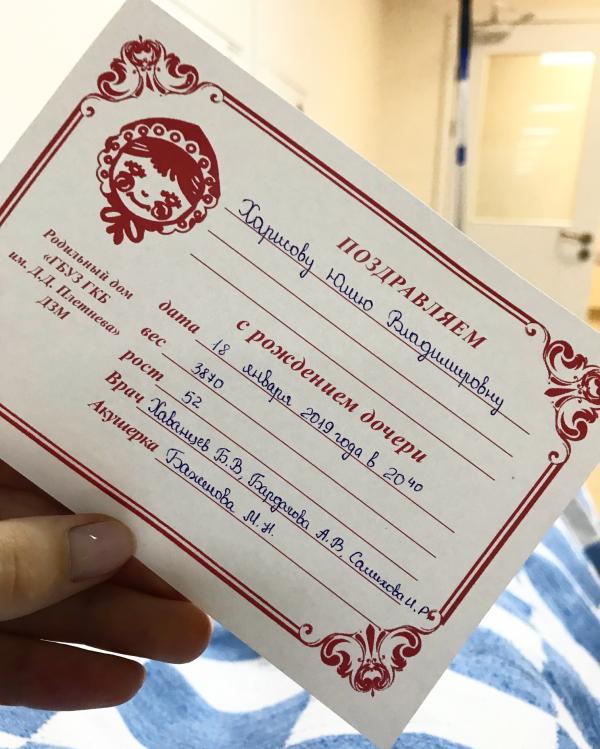 ПОЗДРАВЛЯЕМ
Харисову Юлию Владимировну
с рождением дочери
дата 18 января 2019 года в 20 40
вес 3870
рост 52
Врач Хаванцев Б.В, Бардакова А.В, Салихова И.Р.
Акушерка Баженова М.Н.
Родильный дом
«ГБУЗ ГКБ
им. Д.Д. Плетнева»
ДЗМ